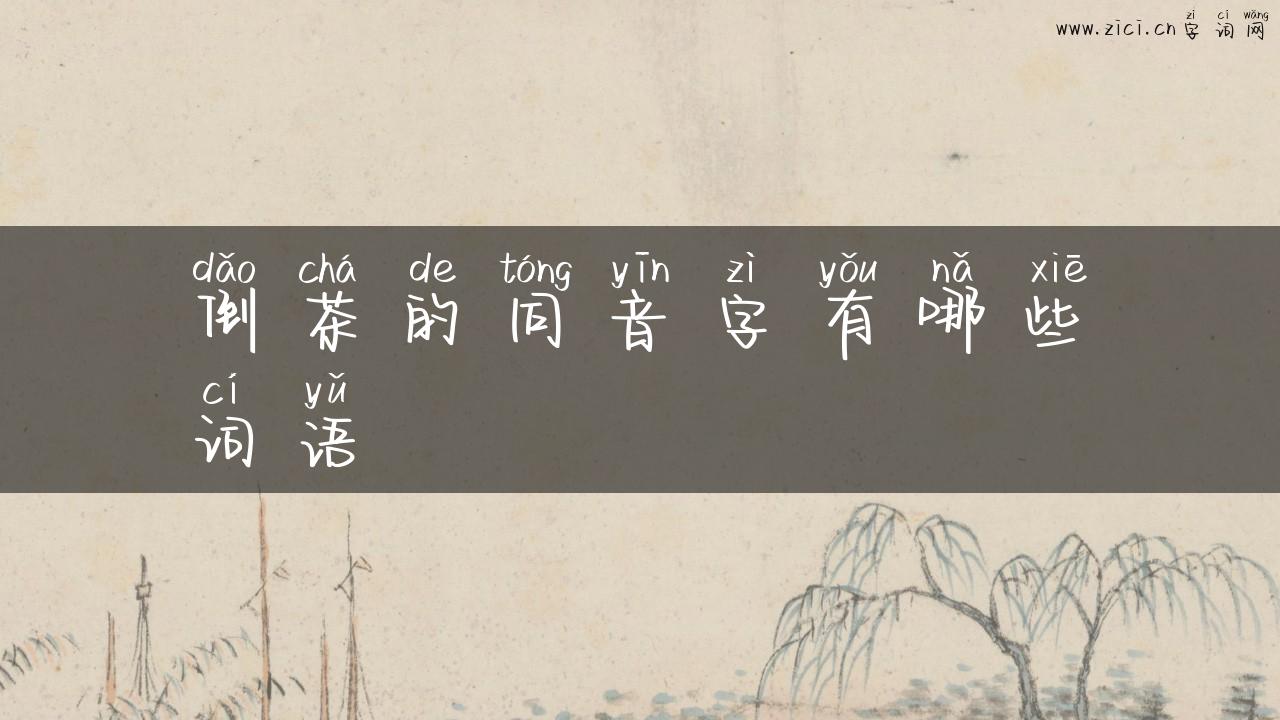 zì cí wǎng
www.zici.cn 字词网
dǎo chá de tóng yīn zì yǒu nǎ xiē
倒茶的同音字有哪些
cí yǔ
词语